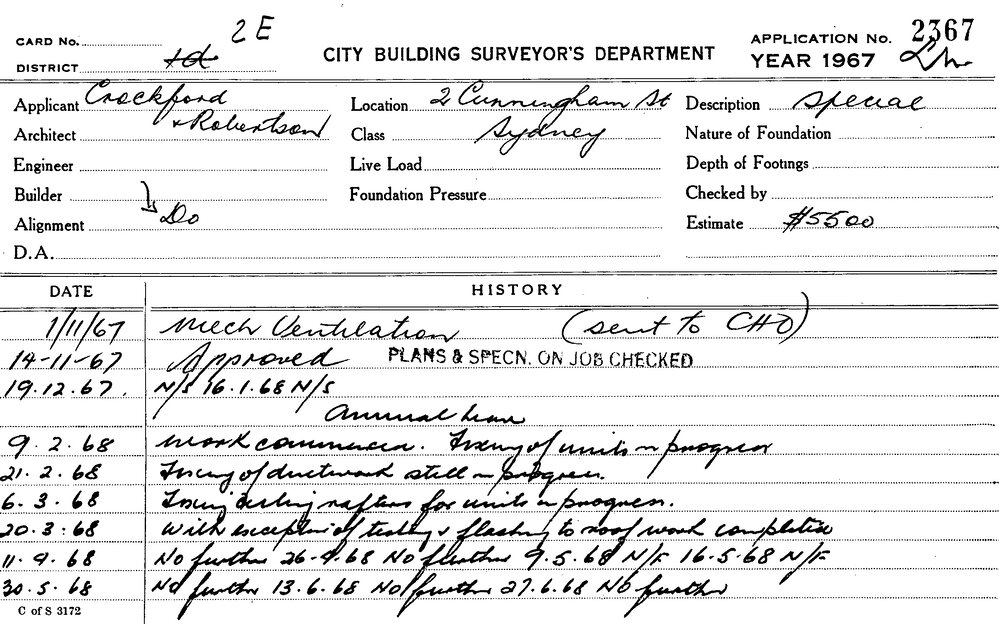 2E
CARD No.
DISTRICT
CITY BUILDING SURVEYOR'S DEPARTMENT
APPLICATION No. 2367
YEAR 1967
Applicant Crockford
& Robertson
Architect
Engineer
Builder
Alignment Do
D.A.
Location 2 Cunningham St
Sydney
Class
Live Load
Foundation Pressure
Description Special
Nature of Foundation
Depth of Footings
Checked by
Estimate $5500
DATE HISTORY
1/11/67 Mech Ventilation (sent to CHO)
14-11-67 Approved PLANS & SPECN. ON JOB CHECKED
19.12.67. N/S 16.1.68 N/S
Annual leave
9.2.68 Work commenced. Fixing of units in progress
21.2.68 Fixing of ductwork still in progress.
6.3.68 Fixing ceiling rafters for units in progress.
20.3.68 With exception of testing & flashing to roof work completed
11.4.68 No further 26.4.68 No further 9.5.68 N/F 16.5.68 N/F
30.5.68 No further 13.6.68 No further 27.6.68 No further
C of S 3172